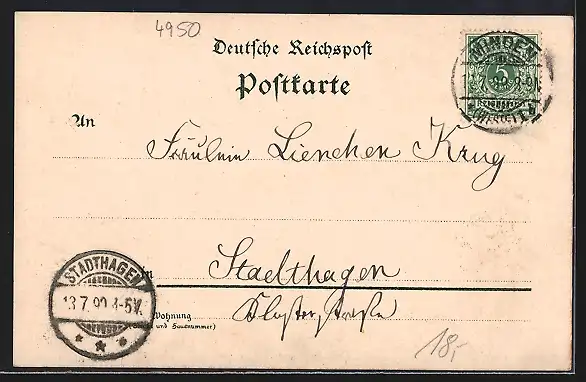 4950
Deutsche Reichspost
Postkarte
MINDEN
5
REICHSPOST
(WESTF) 1
An
Fräulein Lienchen Krug
in Stadthagen
STADTHAGEN
13.7.99.4-5V.
Wohnung
(Straße und Hausnummer)
Klosterstraße
18,-